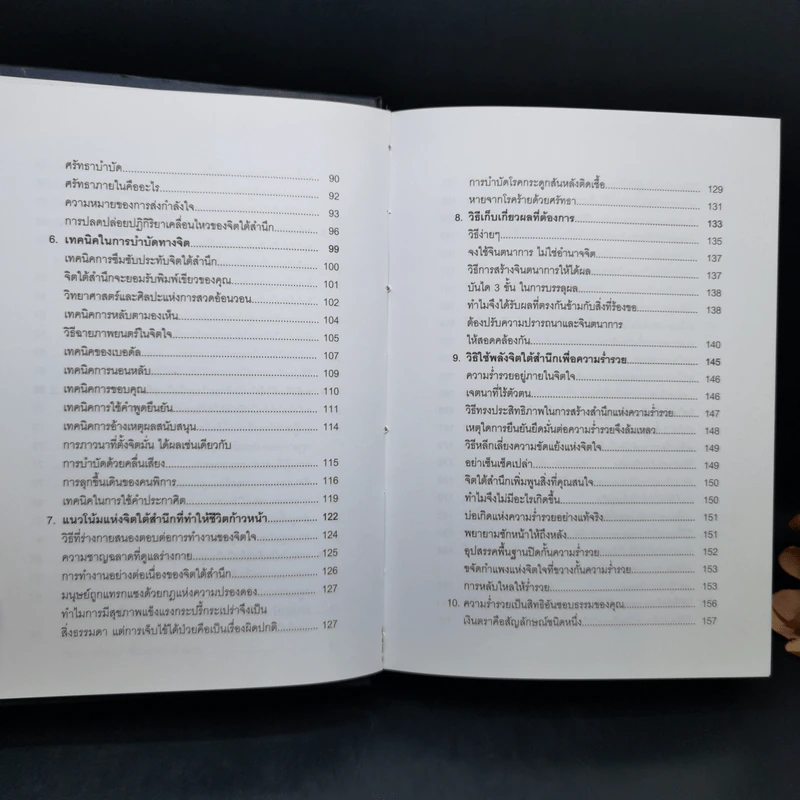 ศรัทธาบำบัด........ 90
ศรัทธาภายในคืออะไร........ 92
ความหมายของการส่งกำลังใจ........ 93
การปลดปล่อยปฏิกิริยาเคลื่อนไหวของจิตใต้สำนึก........ 96
6. เทคนิคในการบำบัดทางจิต........ 99
เทคนิคการซึมซับประทับจิตใต้สำนึก........ 100
จิตใต้สำนึกจะยอมรับพิมพ์เขียวของคุณ........ 101
วิทยาศาสตร์และศิลปะแห่งการสวดอ้อนวอน........ 102
เทคนิคการหลับตามองเห็น........ 104
วิธีฉายภาพยนตร์ในจิตใจ........ 105
เทคนิคของเบอดัล........ 107
เทคนิคการนอนหลับ........ 109
เทคนิคการขอบคุณ........ 110
เทคนิคการใช้คำพูดยืนยัน........ 111
เทคนิคการอ้างเหตุผลสนับสนุน........ 114
การภาวนาที่ตั้งจิตมั่น ได้ผลเช่นเดียวกับ
การบำบัดด้วยคลื่นเสียง........ 115
การลุกขึ้นเดินของคนพิการ........ 116
เทคนิคในการใช้คำประกาศิต........ 119
7. แนวโน้มแห่งจิตใต้สำนึกที่ทำให้ชีวิตก้าวหน้า........ 122
วิธีที่ร่างกายสนองตอบต่อการทำงานของจิตใจ........ 124
ความชาญฉลาดที่ดูแลร่างกาย........ 125
การทำงานอย่างต่อเนื่องของจิตใต้สำนึก........ 126
มนุษย์ถูกแทรกแซงด้วยกฎแห่งความปรองดอง........ 127
ทำไมการมีสุขภาพแข็งแรงกระปรี้กระเปร่าจึงเป็น
สิ่งธรรมดา แต่การเจ็บไข้ได้ป่วยคือเป็นเรื่องผิดปกติ........ 127
การบำบัดโรคกระดูกสันหลังติดเชื้อ........ 129
หายจากโรคร้ายด้วยศรัทธา........ 131
8. วิธีเก็บเกี่ยวผลที่ต้องการ........ 133
วิธีง่ายๆ........ 135
จงใช้จินตนาการ ไม่ใช่อำนาจจิต........ 137
วิธีการสร้างจินตนาการให้ได้ผล........ 137
บันได 3 ขั้น ในการบรรลุผล........ 138
ทำไมจึงได้รับผลที่ตรงกันข้ามกับสิ่งที่ร้องขอ........ 138
ต้องปรับความปรารถนาและจินตนาการ
ให้สอดคล้องกัน........ 140
9. วิธีใช้พลังจิตใต้สำนึกเพื่อความร่ำรวย........ 145
ความร่ำรวยอยู่ภายในจิตใจ........ 146
เจตนาที่ไร้ตัวตน........ 146
วิธีทรงประสิทธิภาพในการสร้างสำนึกแห่งความร่ำรวย........ 147
เหตุใดการยืนยันยึดมั่นต่อความร่ำรวยจึงล้มเหลว........ 148
วิธีหลีกเลี่ยงความขัดแย้งแห่งจิตใจ........ 149
อย่าเซ็นเช็คเปล่า........ 149
จิตใต้สำนึกเพิ่มพูนสิ่งที่คุณสนใจ........ 150
ทำไมจึงไม่มีอะไรเกิดขึ้น........ 150
บ่อเกิดแห่งความร่ำรวยอย่างแท้จริง........ 151
พยายามชักหน้าให้ถึงหลัง........ 151
อุปสรรคพื้นฐานปิดกั้นความร่ำรวย........ 152
ขจัดกำแพงแห่งจิตใจที่ขวางกั้นความร่ำรวย........ 153
การหลับใหลให้ร่ำรวย........ 153
10. ความร่ำรวยเป็นสิทธิอันชอบธรรมของคุณ........ 156
เงินตราคือสัญลักษณ์ชนิดหนึ่ง........ 157